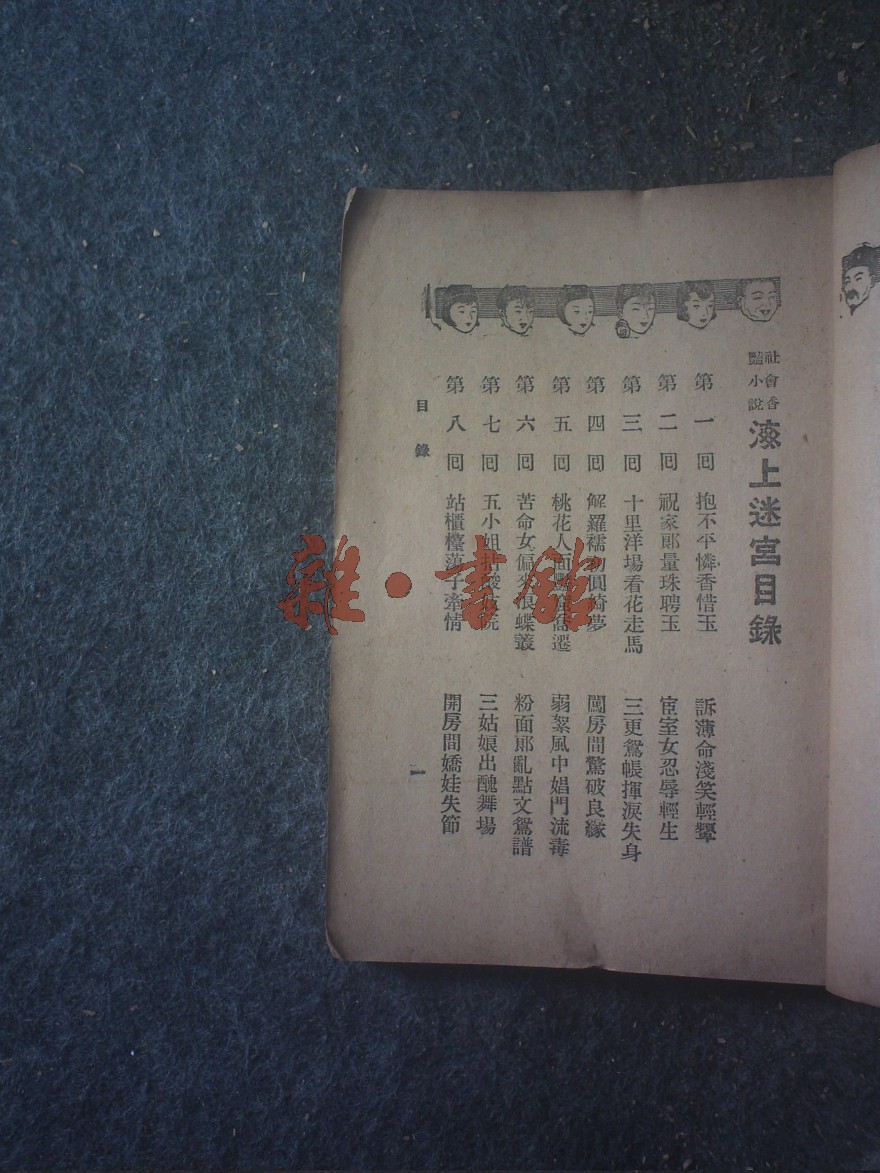 社會香豔小說
海上迷宮目錄
第一回 抱不平憐香惜玉 訴薄命淺笑輕顰
第二回 祝家郎量珠聘玉 宦室女忍辱輕生
第三回 十里洋場看花走馬 三更鴛帳揮淚失身
第四回 解羅襦初圓綺夢 闖房間驚破良緣
第五回 桃花人面 喬遷 弱絮風中娼門流毒
第六回 苦命女偏 蝶叢 粉面郎亂點文鴛譜
第七回 五小姐 院 三姑娘出醜舞場
第八回 站櫃檯蕩子牽情 開房間嬌娃失節
目錄
一
雜·書館